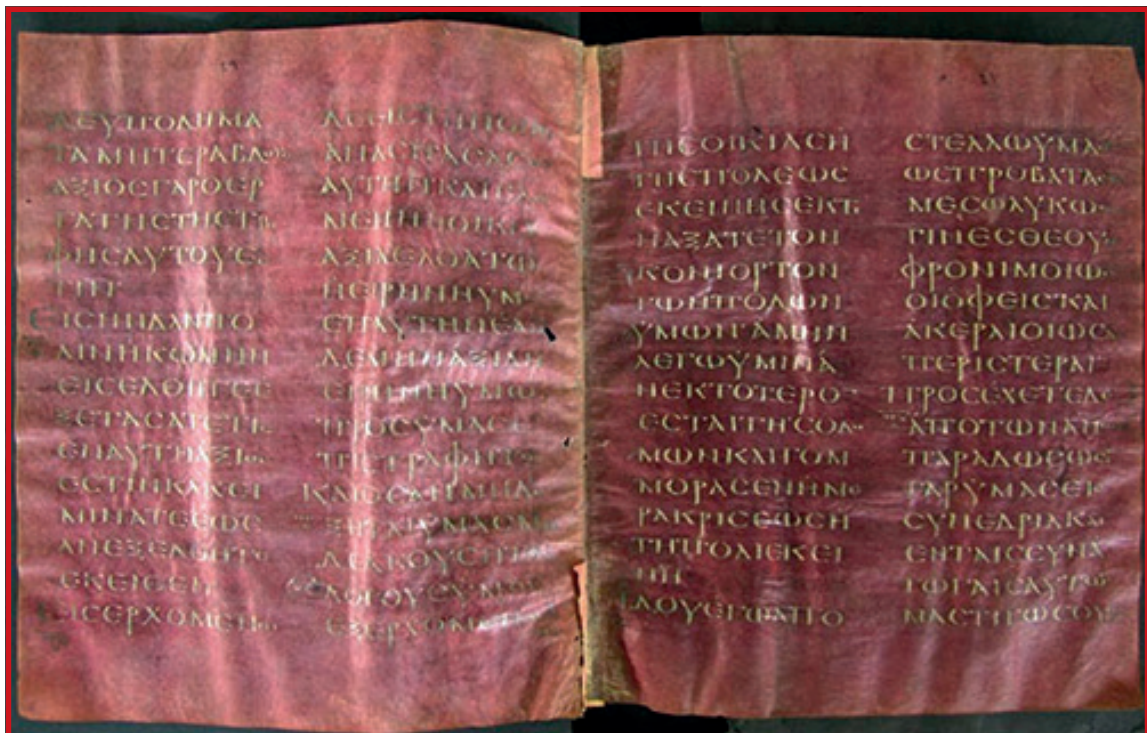 ΔΕΥΠΟΔΗΜΑ
ΤΑΜΗΤΕΡΑΒΔΟΝ
ΑΞΙΟϹΓΑΡΟΕΡ
ΓΑΤΗϹΤΗϹΤΡ
ΦΗϹΑΥΤΟΥΕϹ
ΤΙΝ
ΕΙϹΗΝΔΑΝΠΟ
ΛΙΝΗΚΩΜΗΝ
ΕΙϹΕΛΘΗΤΕΕ
ΞΕΤΑϹΑΤΕΤΙϹ
ΕΝΑΥΤΗΑΞΙΟϹ
ΕϹΤΙΝΚΑΚΕΙ
ΜΙΝΑΤΕΕΩϹ
ΑΝΕΞΕΛΘΗΤΕ
ΕΚΕΙΘΕΝ
ΕΙϹΕΡΧΟΜΕΝΟΙ
ΔΕΕΙϹΤΗΝΟΙΚΙ
ΑΠΑϹΠΑϹΑϹΘΕ
ΑΥΤΗΝΚΑΙΕΑΝ
ΜΕΝΗΗΟΙΚΙΑ
ΑΞΙΑΕΛΘΑΤΩ
ΗΕΙΡΗΝΗΥΜΩΝ
ΕΠΑΥΤΗΝΕΑΝ
ΔΕΜΗΗΑΞΙΑΗ
ΕΙΡΗΝΗΥΜΩΝ
ΠΡΟϹΥΜΑϹΕΠΙ
ΤΙϹΤΡΑΦΗΤΩ
ΚΑΙΟϹΕΑΝΜΗΔΕ
ΞΗΤΑΙΥΜΑϹΜΗ
ΔΕΑΚΟΥϹΗΤΟΥϹ
ΛΟΓΟΥϹΥΜΩΝ
ΕΞΕΡΧΟΜΕΝΟΙ
ΤΗϹΟΙΚΙΑϹΗ
ΤΗϹΠΟΛΕΩϹ
ΕΚΕΙΝΗϹΕΚΤΙ
ΝΑΞΑΤΕΤΟΝ
ΚΟΝΙΟΡΤΟΝ
ΤΩΝΠΟΔΩΝ
ΥΜΩΝΑΜΗΝ
ΛΕΓΩΥΜΙΝΑ
ΝΕΚΤΟΤΕΡΟΝ
ΕϹΤΑΙΓΗϹΟΔΟ
ΜΩΝΚΑΙΓΟΜ
ΜΟΡΑϹΕΝΗΜΕ
ΡΑΚΡΙϹΕΩϹΗ
ΤΗΠΟΛΙΕΚΕΙ
ΝΗ
ΙΔΟΥΕΓΩΑΠΟ
ϹΤΕΛΛΩΥΜΑϹ
ΩϹΠΡΟΒΑΤΑΕΝ
ΜΕϹΩΛΥΚΩΝ
ΓΙΝΕϹΘΕΟΥΝ
ΦΡΟΝΙΜΟΙΩϹ
ΟΙΟΦΕΙϹΚΑΙ
ΑΚΕΡΑΙΟΙΩϹΑΙ
ΠΕΡΙϹΤΕΡΑΙ
ΠΡΟϹΕΧΕΤΕΔΕ
ΑΠΟΤΩΝΑΝ
ΠΑΡΑΔΩϹΟΥϹΙ
ΓΑΡΥΜΑϹΕΙϹ
ϹΥΝΕΔΡΙΑΚΑΙ
ΕΝΤΑΙϹϹΥΝΑ
ΓΩΓΑΙϹΑΥΤΩΝ
ΜΑϹΤΙΓΩϹΟΥϹΙ